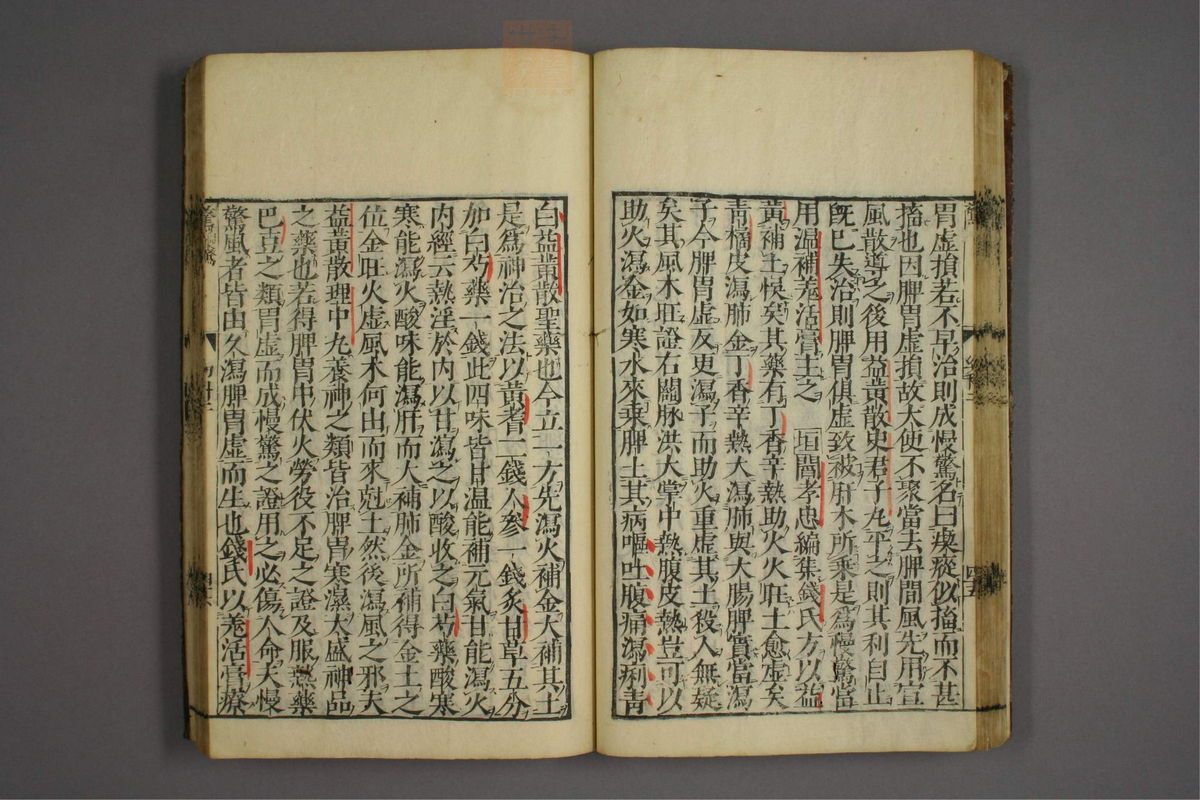 胃虛損若不早治則成慢驚名曰瘈瘲似搐而不甚
搐也因脾胃虛損故大便不聚當去脾間風先用宣
風散導之後用益黃散史君子丸平之則其利自止
旣已失治則脾胃俱虛致被肝木所乘是爲慢驚當
用温補羌活膏主之 垣閣孝忠編集錢氏方以益
黃補土悞矣其藥有丁香辛熱助火火旺土愈虛矣
青橘皮瀉肺金丁香辛熱大瀉肺與大腸脾實當瀉
子今脾胃虛反更瀉子而助火重虛其土殺人無疑
矣其風木旺證右關脉洪大掌中熱腹皮熱豈可以
助火瀉金如寒水來乘脾土其病嘔吐腹痛瀉痢青
白益黃散聖藥也今立一方先瀉火補金大補其土
是爲神治之法以黃耆二錢人參一錢炙甘草五分
加白芍藥一錢此四味皆甘温能補元氣甘能瀉火
内經云熱淫於内以甘瀉之以酸收之白芍藥酸寒
寒能瀉火酸味能瀉肝而大補肺金所補得金土之
位金旺火虛風木何由而來尅土然後瀉風之邪夫
益黃散理中丸養神之類皆治脾胃寒濕太盛神品
之藥也若得脾胃中伏火勞役不足之證及服熱藥
巴豆之類胃虛而成慢驚之證用之必傷人命夫慢
驚風者皆由久瀉脾胃虛而生也錢氏以羌活膏療